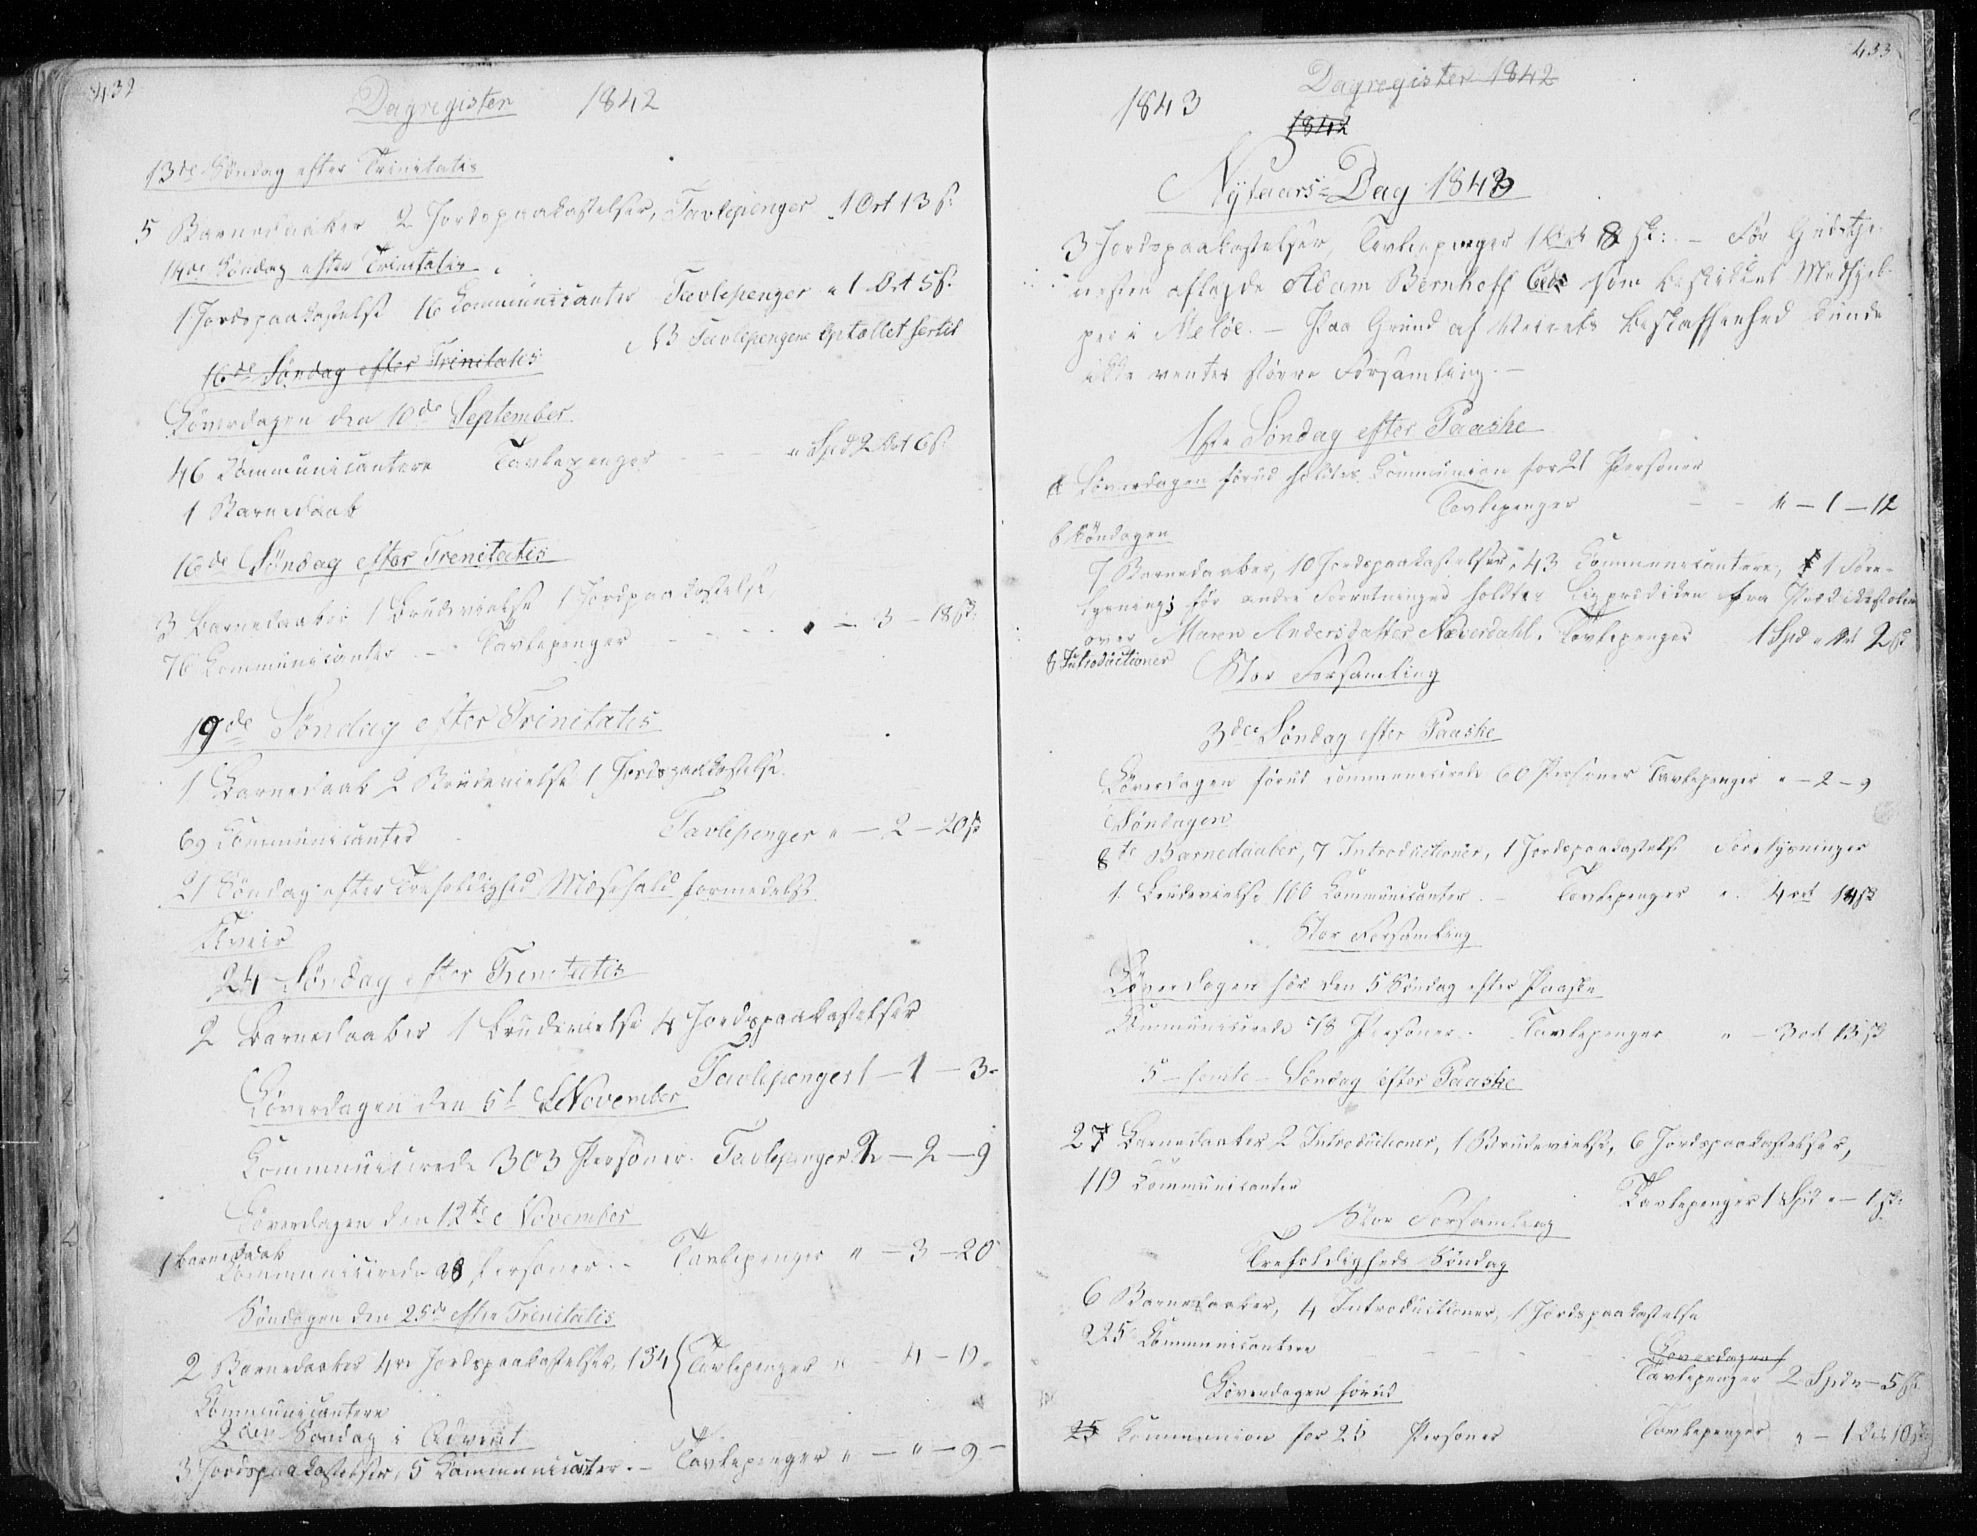 432
Dagregister 1842
13de Søndag efter Trinitatis
5 Barnedaaber 2 Jordspaakastelser, Tavlepenger 1 Ort 13 ß
14de Søndag efter Trinitatis
1 Jordspaakastelse 16 Communicanter Tavlepenger " 1 Ort 5 ß
NB Tavlepengene optællet hertil
16de Søndag efter Trinitatis
Løverdagen den 10de September
46 Communicantere Tavlepenger - - - " Spd 2 Ort 6 ß
1 Barnedaab
16de Søndag efter Trenitatis
3 Barnedaaber 1 Brudevielse 1 Jordpaakastelse,
76 Communicanter - Tavlepenger - - - - - 3 - 18 ß
19de Søndag efter Trinitatis
1 Barnedaab 2 Brudevielse 1 Jordspaakastelse.
69 Communicanter Tavlepenger " - 2 - 20 ß
21 Søndag efter Trefoldighed Messefald formedelst
Uveir
24 Søndag efter Trenitatis
2 Barnedaaber 1 Brudevielse 4 Jordspaakastelser
Tavlepenger 1 - 1 - 3 -
Løverdagen den 5t November
Communicerede 303 Personer. Tavlepenger 2 - 2 - 9
Løverdagen den 12te November
1 Barnedaab
Communicerede 98 Personer. - Tavlepenger " - 3 - 20
Søndagen den 25de efter Trinitatis
2 Barnedaaber 4re Jordspaakastelser, 134 Tavlepenger " - 4 - 19.
Communicantere
2den Søndag i Advent
3 Jordspaakastelser, 5 Communicanter. - Tavlepenger " - " - 9 -
433
Dagregister 1842
1843
1842
Nytaars-Dag 1843
3 Jordspaakastelser, Tavlepenger 1 Ort 8 ß: - Før Gudstje-
nesten aflagde Adam Bernhoff Eed som beskikket Medhjel-
per i Meløe. - Paa Grund af Veirets Beskaffenhed kunde
ikke ventes større Forsamling. -
1ste Søndag efter Paaske
a Løverdagen forud holdtes Communion for 21 Personer
Tavlepenger - - " - 1 - 12
b Søndagen
7 Barnedaaber, 10 Jordspaakastelser, 43 Communicantere, 1 Fore-
lysning; før andre Forretninger holdtes Ligprediken fra Prædikestolen
over Maren Andersdatter Næverdahl. Tavlepenger 1 Spd " Ort 2 ß
8 Introductioner
Stor Forsamling
3die Søndag efter Paaske
Løverdagen forud communicerede 60 Personer Tavlepenger " - 2 - 9
Søndagen
8te Barnedaaber, 7 Introductioner, 1 Jordspaakastelse Forelysninger
1 Brudevielse 100 Communicanter. - Tavlepenger " 4 ort 14 ß
Stor Forsamling
Løverdagen før den 5 Søndag efter Paaske
Communicerede 78 Personer. Tavlepenger " - 3 ort 13 ß
5 - femte - Søndag efter Paaske
27 Barnedaaber 2 Introductioner, 1 Brudevielse, 6 Jordspaakastelser,
119 Communicanter Tavlepenger 1 Spd " - 1 ß:
Stor Forsamling
Trefoldigheds Søndag
6 Barnedaaber, 4 Introductioner, 1 Jordspaakastelse
225 Communicantere
Løverdagen
Tavlepenger 2 Spd " - 5 ß
Løverdagen forud
25 Communion for 25 Personer Tavlepenger " - 1 Ort 10 ß